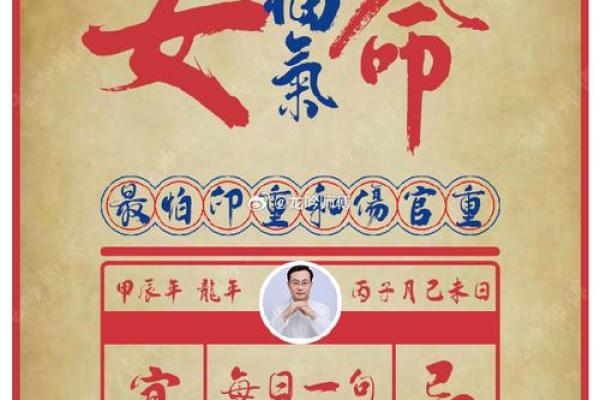 女 福氣 命
最怕印重和傷官重
@龙吟师傅
甲辰年 龍年 丙子月己未日
宜 每日一句 忌